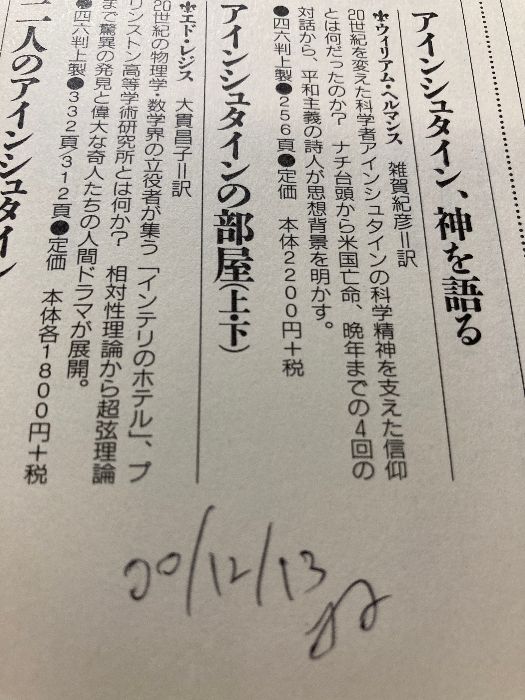 アインシュタイン、神を語る
⚜ウィリアム・ヘルマンス 雑賀紀彦＝訳
20世紀を変えた科学者アインシュタインの科学精神を支えた信仰
とは何だったのか？ ナチ台頭から米国亡命、晩年までの4回の
対話から、平和主義の詩人が思想背景を明かす。
●四六判上製●256頁●定価 本体2200円＋税
アインシュタインの部屋（上・下）
⚜エド・レジス 大貫昌子＝訳
20世紀の物理学・数学界の立役者が集う「インテリのホテル」、プ
リンストン高等学術研究所とは何か？ 相対性理論から超弦理論
まで驚異の発見と偉大な奇人たちの人間ドラマが展開。
●四六判上製●332頁/312頁●定価 本体各1800円＋税
二人のアインシュタイン
00/12/13